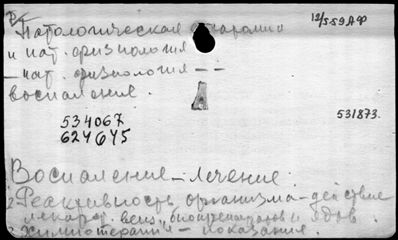 Патологическая анатомия 12/559АФ
и пат. физиология
— пат. физиология — —
воспаление.
А
531873.
534067
624645
Воспаление – лечение.
2 Реактивность организма – действие
лекарств. вещ., биопрепаратов и ядов.
Химиотерапия – показания.